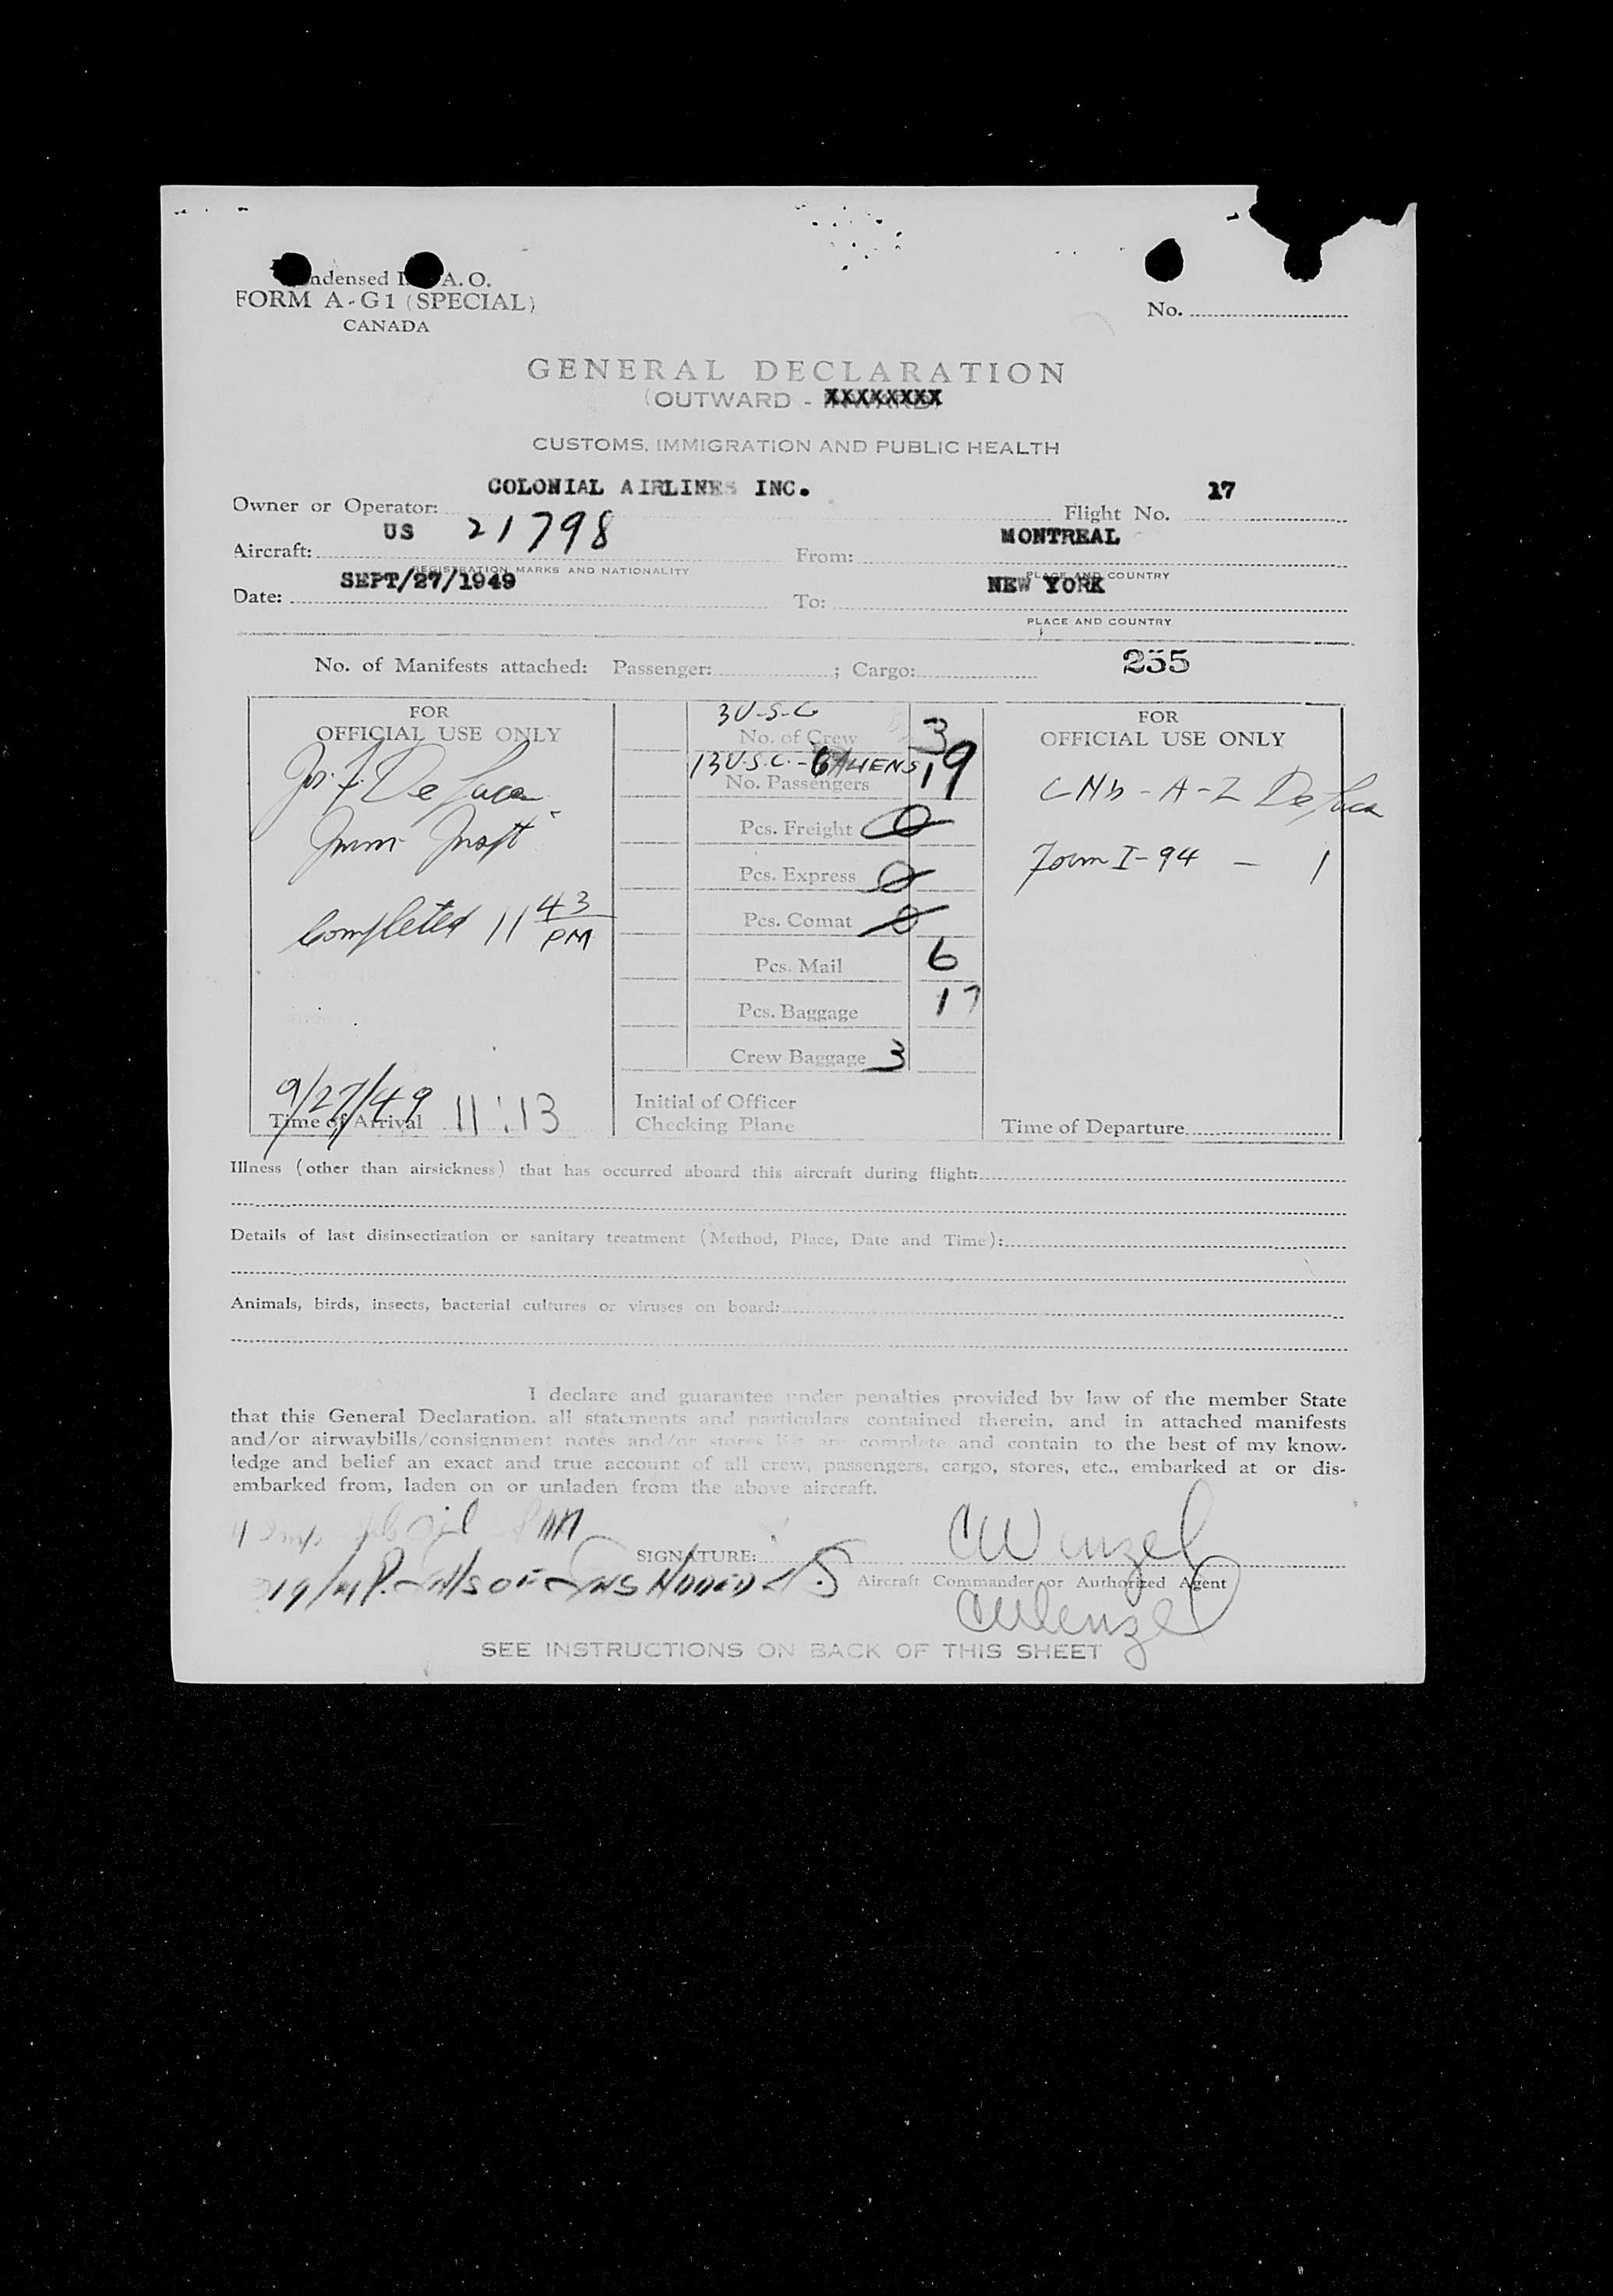 ndensed I. A. O.
FORM A-G1 (SPECIAL)
CANADA
No.
GENERAL DECLARATION
(OUTWARD - XXXXXXXX
CUSTOMS, IMMIGRATION AND PUBLIC HEALTH
Owner or Operator: COLONIAL AIRLINES INC. Flight No. 17
Aircraft: US 21798 From: MONTREAL
REGISTRATION MARKS AND NATIONALITY PLACE AND COUNTRY
Date: SEPT/27/1949 To: NEW YORK
PLACE AND COUNTRY
No. of Manifests attached: Passenger: ; Cargo: 255
FOR
OFFICIAL USE ONLY
De Luca
Imm Inspt
Completed 11 43
PM
9/27/49
Time of Arrival 11:13
3 U-S-C
No. of Crew 3
13 U.S.C. - 6 ALIENS
No. Passengers 19
Pcs. Freight 0
Pcs. Express 0
Pcs. Comat 0
Pcs. Mail 6
Pcs. Baggage 17
Crew Baggage 3
Initial of Officer
Checking Plane
FOR
OFFICIAL USE ONLY
A-2 De Luca
Form I-94 - 1
Time of Departure
Illness (other than airsickness) that has occurred aboard this aircraft during flight:
Details of last disinsectization or sanitary treatment (Method, Place, Date and Time):
Animals, birds, insects, bacterial cultures or viruses on board:
I declare and guarantee under penalties provided by law of the member State
that this General Declaration, all statements and particulars contained therein, and in attached manifests
and/or airwaybills/consignment notes and/or stores list are complete and contain to the best of my know-
ledge and belief an exact and true account of all crew, passengers, cargo, stores, etc., embarked at or dis-
embarked from, laden on or unladen from the above aircraft.
SIGNATURE: CWenzel
Aircraft Commander or Authorized Agent
CWenzel
SEE INSTRUCTIONS ON BACK OF THIS SHEET